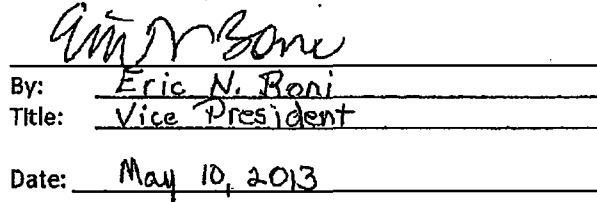 Eric N. Boni
By: Eric N. Boni
Title: Vice President
Date: May 10, 2013